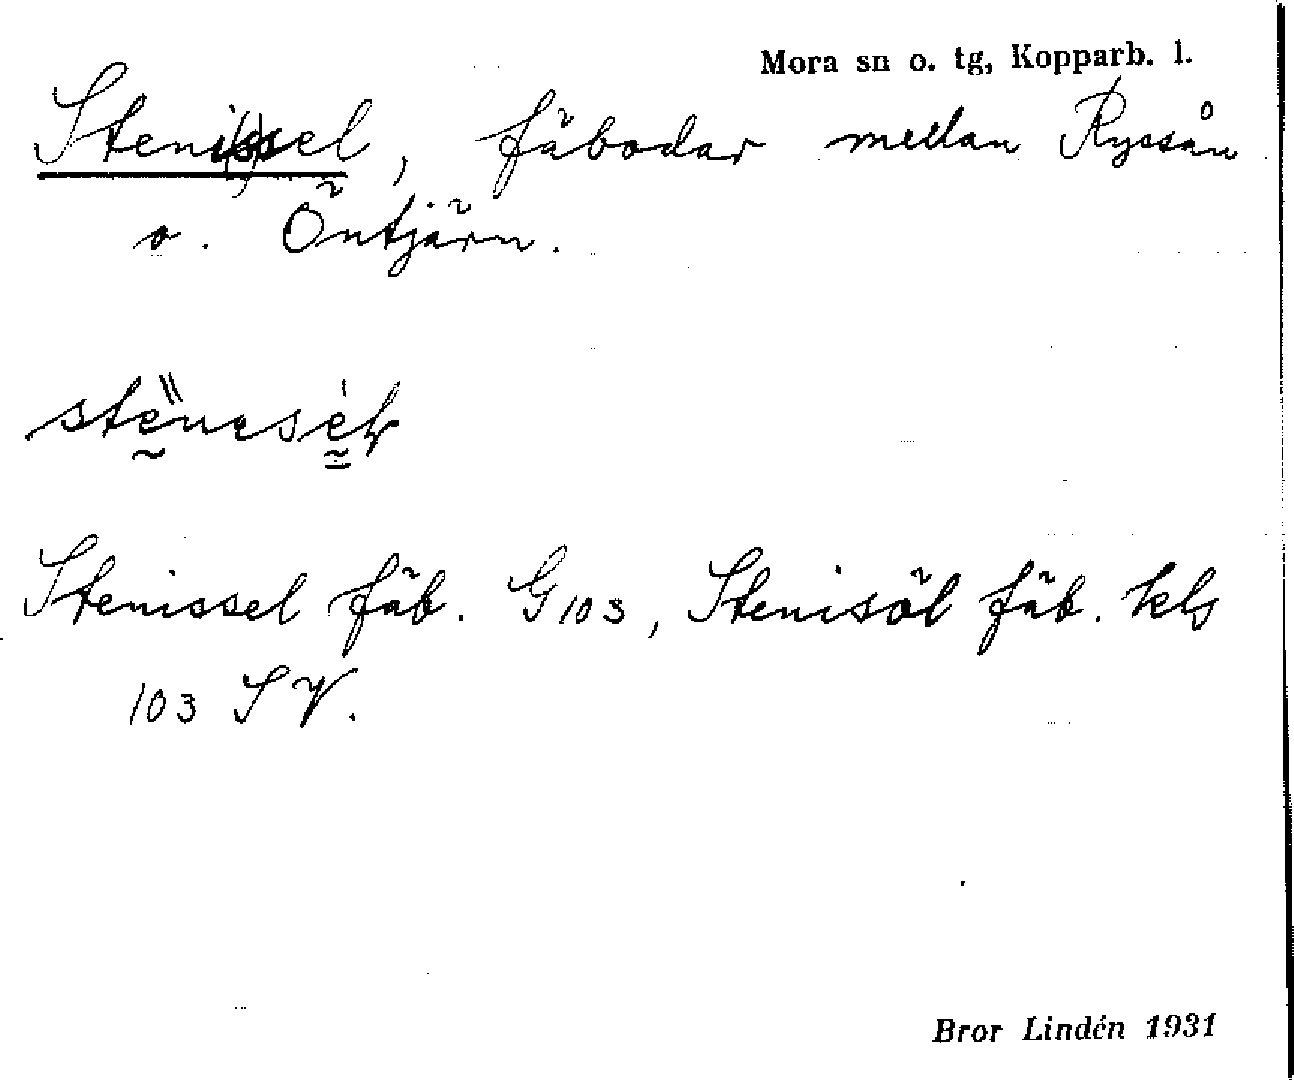 Mora sn o. tg, Kopparb. l.
Steni(s)sel, fäbodar mellan Ryssån
o. Öntjärn.
Stenissel fäb. G 103, Stenisöl fäb. kls
103 SV.
Bror Lindén 1931